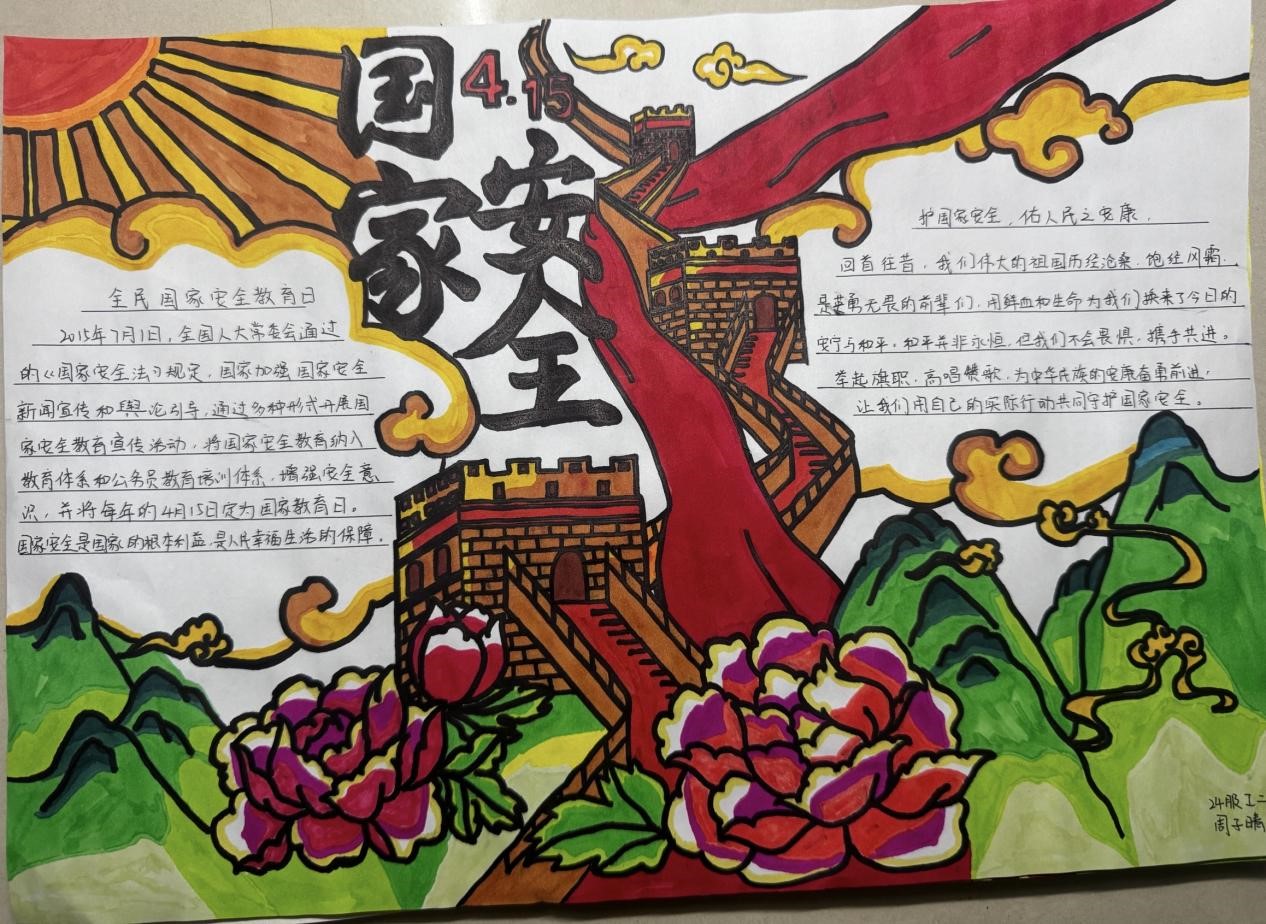 国家安全
4.15
全民国家安全教育日
2015年7月1日,全国人大常委会通过
的《国家安全法》规定,国家加强国家安全
新闻宣传和舆论引导,通过多种形式开展国
家安全教育宣传活动,将国家安全教育纳入
教育体系和公务员教育培训体系,增强安全意
识,并将每年的4月15日定为国家教育日。
国家安全是国家的根本利益,是人民幸福生活的保障。
护国家安全,佑人民之安康,
回首往昔,我们伟大的祖国历经沧桑,饱经风霜.
是英勇无畏的前辈们,用鲜血和生命为我们换来了今日的
安宁与和平,和平并非永恒,但我们不会畏惧,携手共进。
举起旗职,高唱赞歌,为中华民族的安康奋勇前进,
让我们用自己的实际行动共同守护国家安全。
24服工二
周子晴